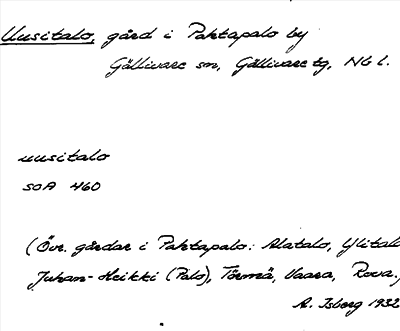 Uusitalo, gård i Paktapalo by
Gällivare sn, Gällivare tg, Nb l.
uusitalo
SOA 460
(Övr. gårdar i Paktapalo: Alatalo, Ylital
Juhan-Heikki (Palo), Törmä, Vaara, Rova.
A. Isberg 1932